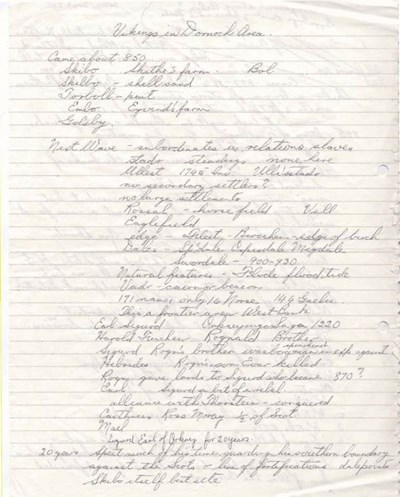 Vikings in Dornoch Area.
Came about 850
Skibo Skithe's farm. Bol
Skelbo - shell sand
Torboll - peat
Embo Eyvind's farm
Golsby.
Next Wave - subordinates i.e. relations, slaves
steadings none here
Ullest 1745
no secondary settlers?
no large settlements
Rossal - horse field Vall
Eaglefield
edge - edge of birch
Dales - Spidale Ospisdale Migdale
Swordale - 900-930
Natural features - Floode flood tide
Vadr - cairn or beacon
171 names only 16 Norse 146 Gaelic
This a frontier area West Bank
Earl Sigurd Orkneyinga Saga 1220
Harold Finehair Rognvald Brother
Sigurd Rogn's brother was bowman in exp against
Hebrides Rogn's son Ivar killed
Rogn gave lands to Sigurd who became 870?
Earl Sigurd a bit of a rebel
alliance with Thorstein - conquered
Caithness Ross Moray ½ of Scot
Mael
Sigurd Earl of Orkney for 20 years
20 years Spent much of his time guarding his southern boundary
against the Scots - line of fortifications
Skibo itself but site